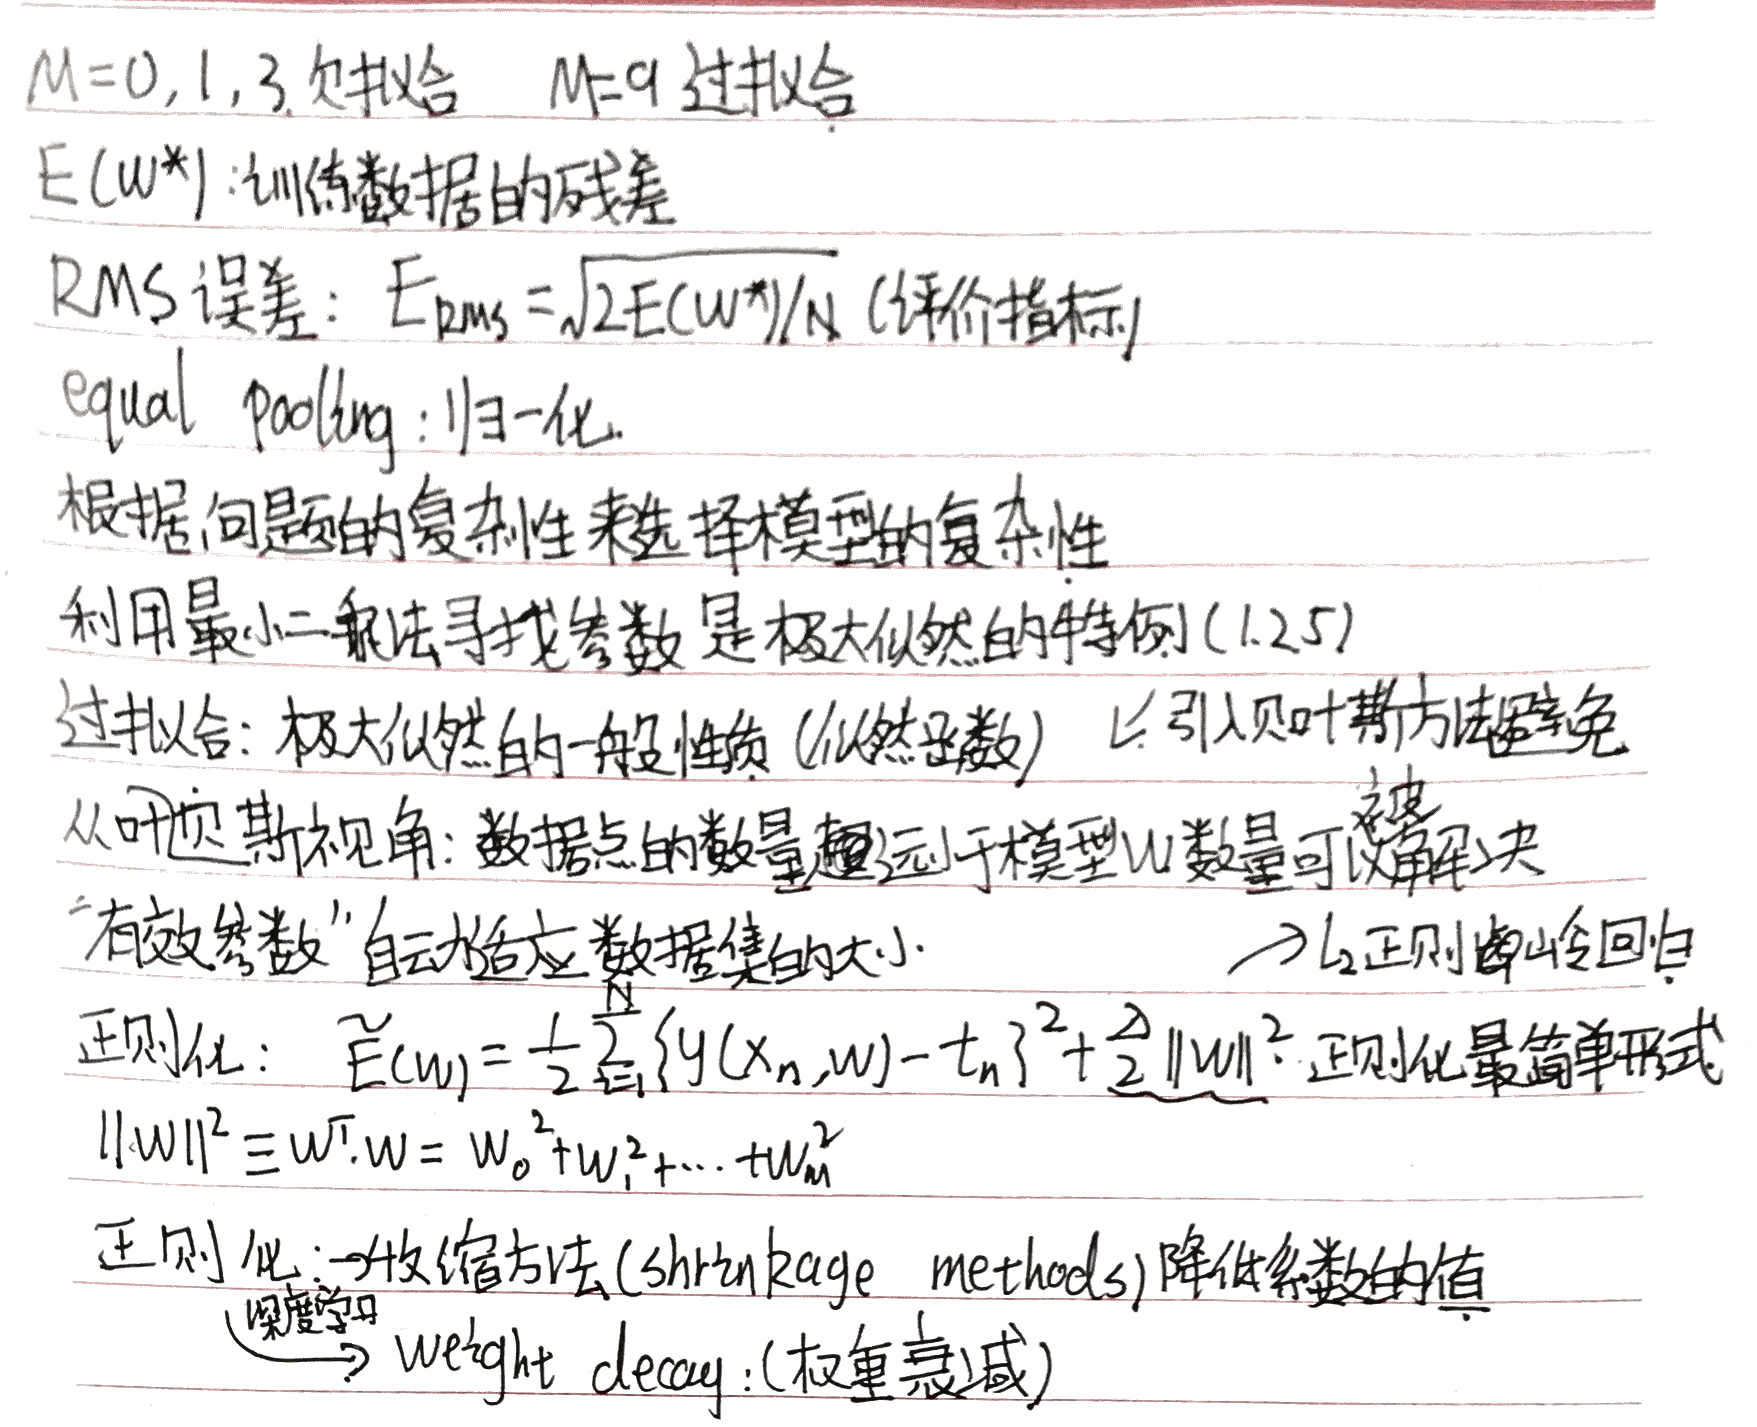 M=0,1,3.欠拟合 M=9 过拟合
E(W*):训练数据的残差
RMS误差: E_RMS = √2E(W*)/N (评价指标)
equal pooling:归一化.
根据问题的复杂性来选择模型的复杂性
利用最小二乘法寻找参数是极大似然的特例(1.2.5)
过拟合: 极大似然的一般性质(似然函数) ↙引入贝叶斯方法避免
从叶贝斯视角: 数据点的数量超远于模型W数量可以被解决
"有效参数"自动适应数据集的大小. →L₂正则 岭回归
正则化: Ẽ(w) = 1/2 Σ_{i=1}^{N} {y(x_n,w) - t_n}² + λ/2 ||W||². 正则化最简单形式
||W||² ≡ W^T.W = W₀²+W₁²+...+W_M²
正则化:→收缩方法(shrinkage methods)降低系数的值
深度学习
→ weight decay:(权重衰减)